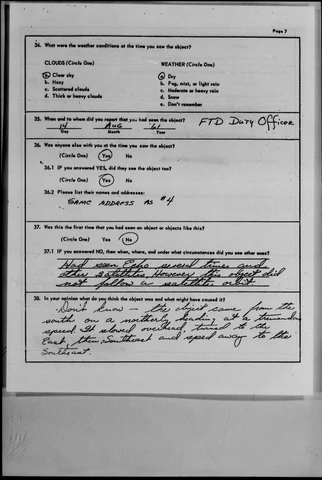 Page 7
34. What were the weather conditions at the time you saw the object?
CLOUDS (Circle One) WEATHER (Circle One)
a. Clear sky a. Dry
b. Hazy b. Fog, mist, or light rain
c. Scattered clouds c. Moderate or heavy rain
d. Thick or heavy clouds d. Snow
e. Don't remember
35. When and to whom did you report that you had seen the object?
14 Aug '61 FTD Duty Officer
Day Month Year
36. Was anyone else with you at the time you saw the object?
(Circle One) Yes No
36.1 IF you answered YES, did they see the object too?
(Circle One) Yes No
36.2 Please list their names and addresses:
SAME ADDRESS AS #4
37. Was this the first time that you had seen an object or objects like this?
(Circle One) Yes No
37.1 IF you answered NO, then when, where, and under what circumstances did you see other ones?
Had seen Echo several times and
other satellites. However this object did
not follow a satellite orbit
38. In your opinion what do you think the object was and what might have caused it?
Don't know — the object came from the
south on a northerly heading at a tremendous
speed. It slowed overhead, turned to the
East, then Southeast and sped away to the
Southeast.